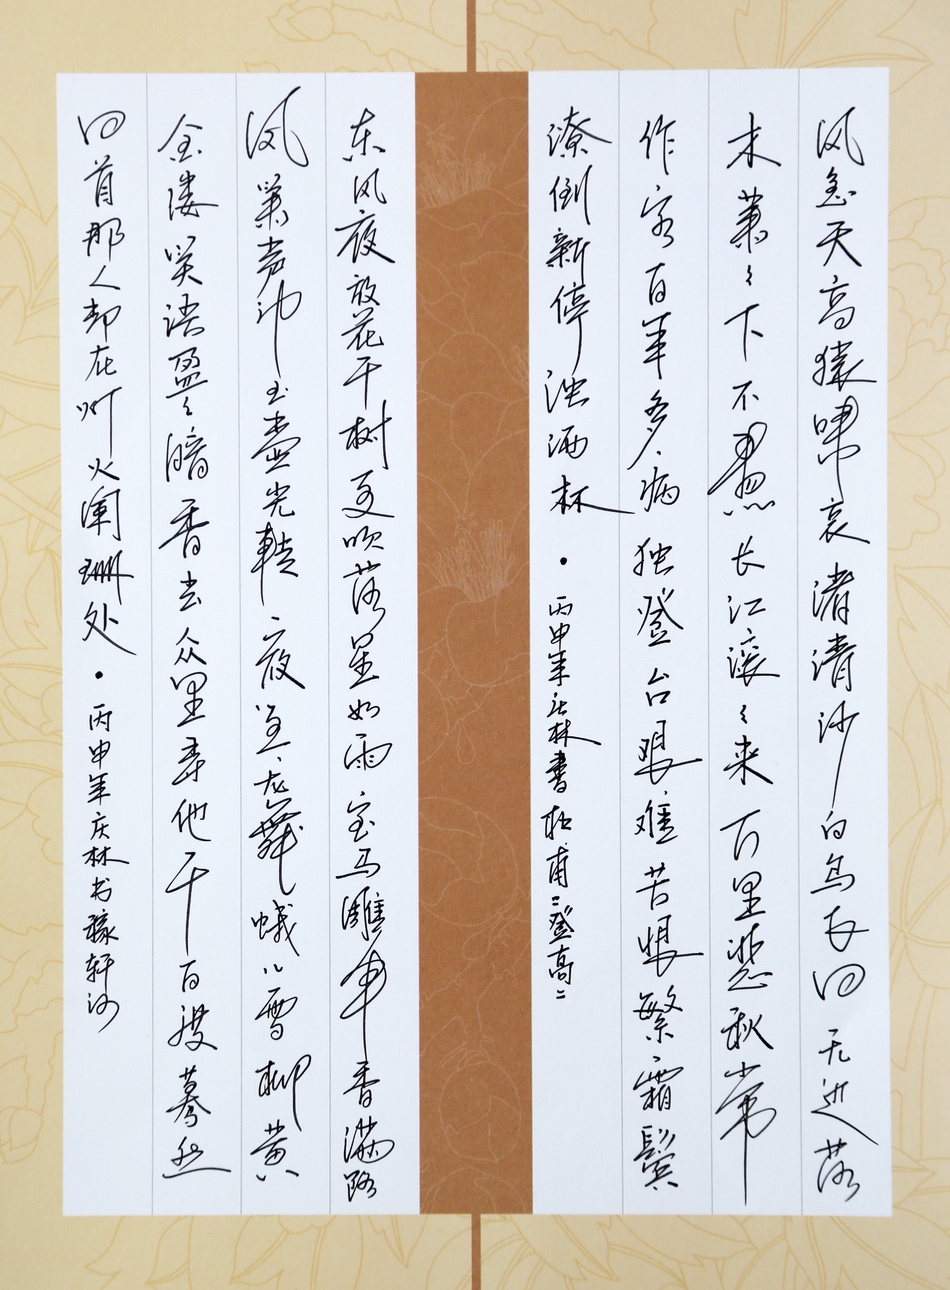 风急天高猿啸哀渚清沙白鸟飞回无边落
木萧々下不盡长江滚々来万里悲秋常
作客百年多病独登台艰难苦恨繁霜鬓
潦倒新停浊酒杯·丙申年庆林書杜甫=登高=
东风夜放花千树更吹落星如雨宝马雕车香满路
凤箫声动玉壶光轉一夜鱼龙舞蛾儿雪柳黄
金缕笑语盈々暗香去众里寻他千百度蓦然
回首那人却在灯火阑珊处·丙申年庆林书稼轩词